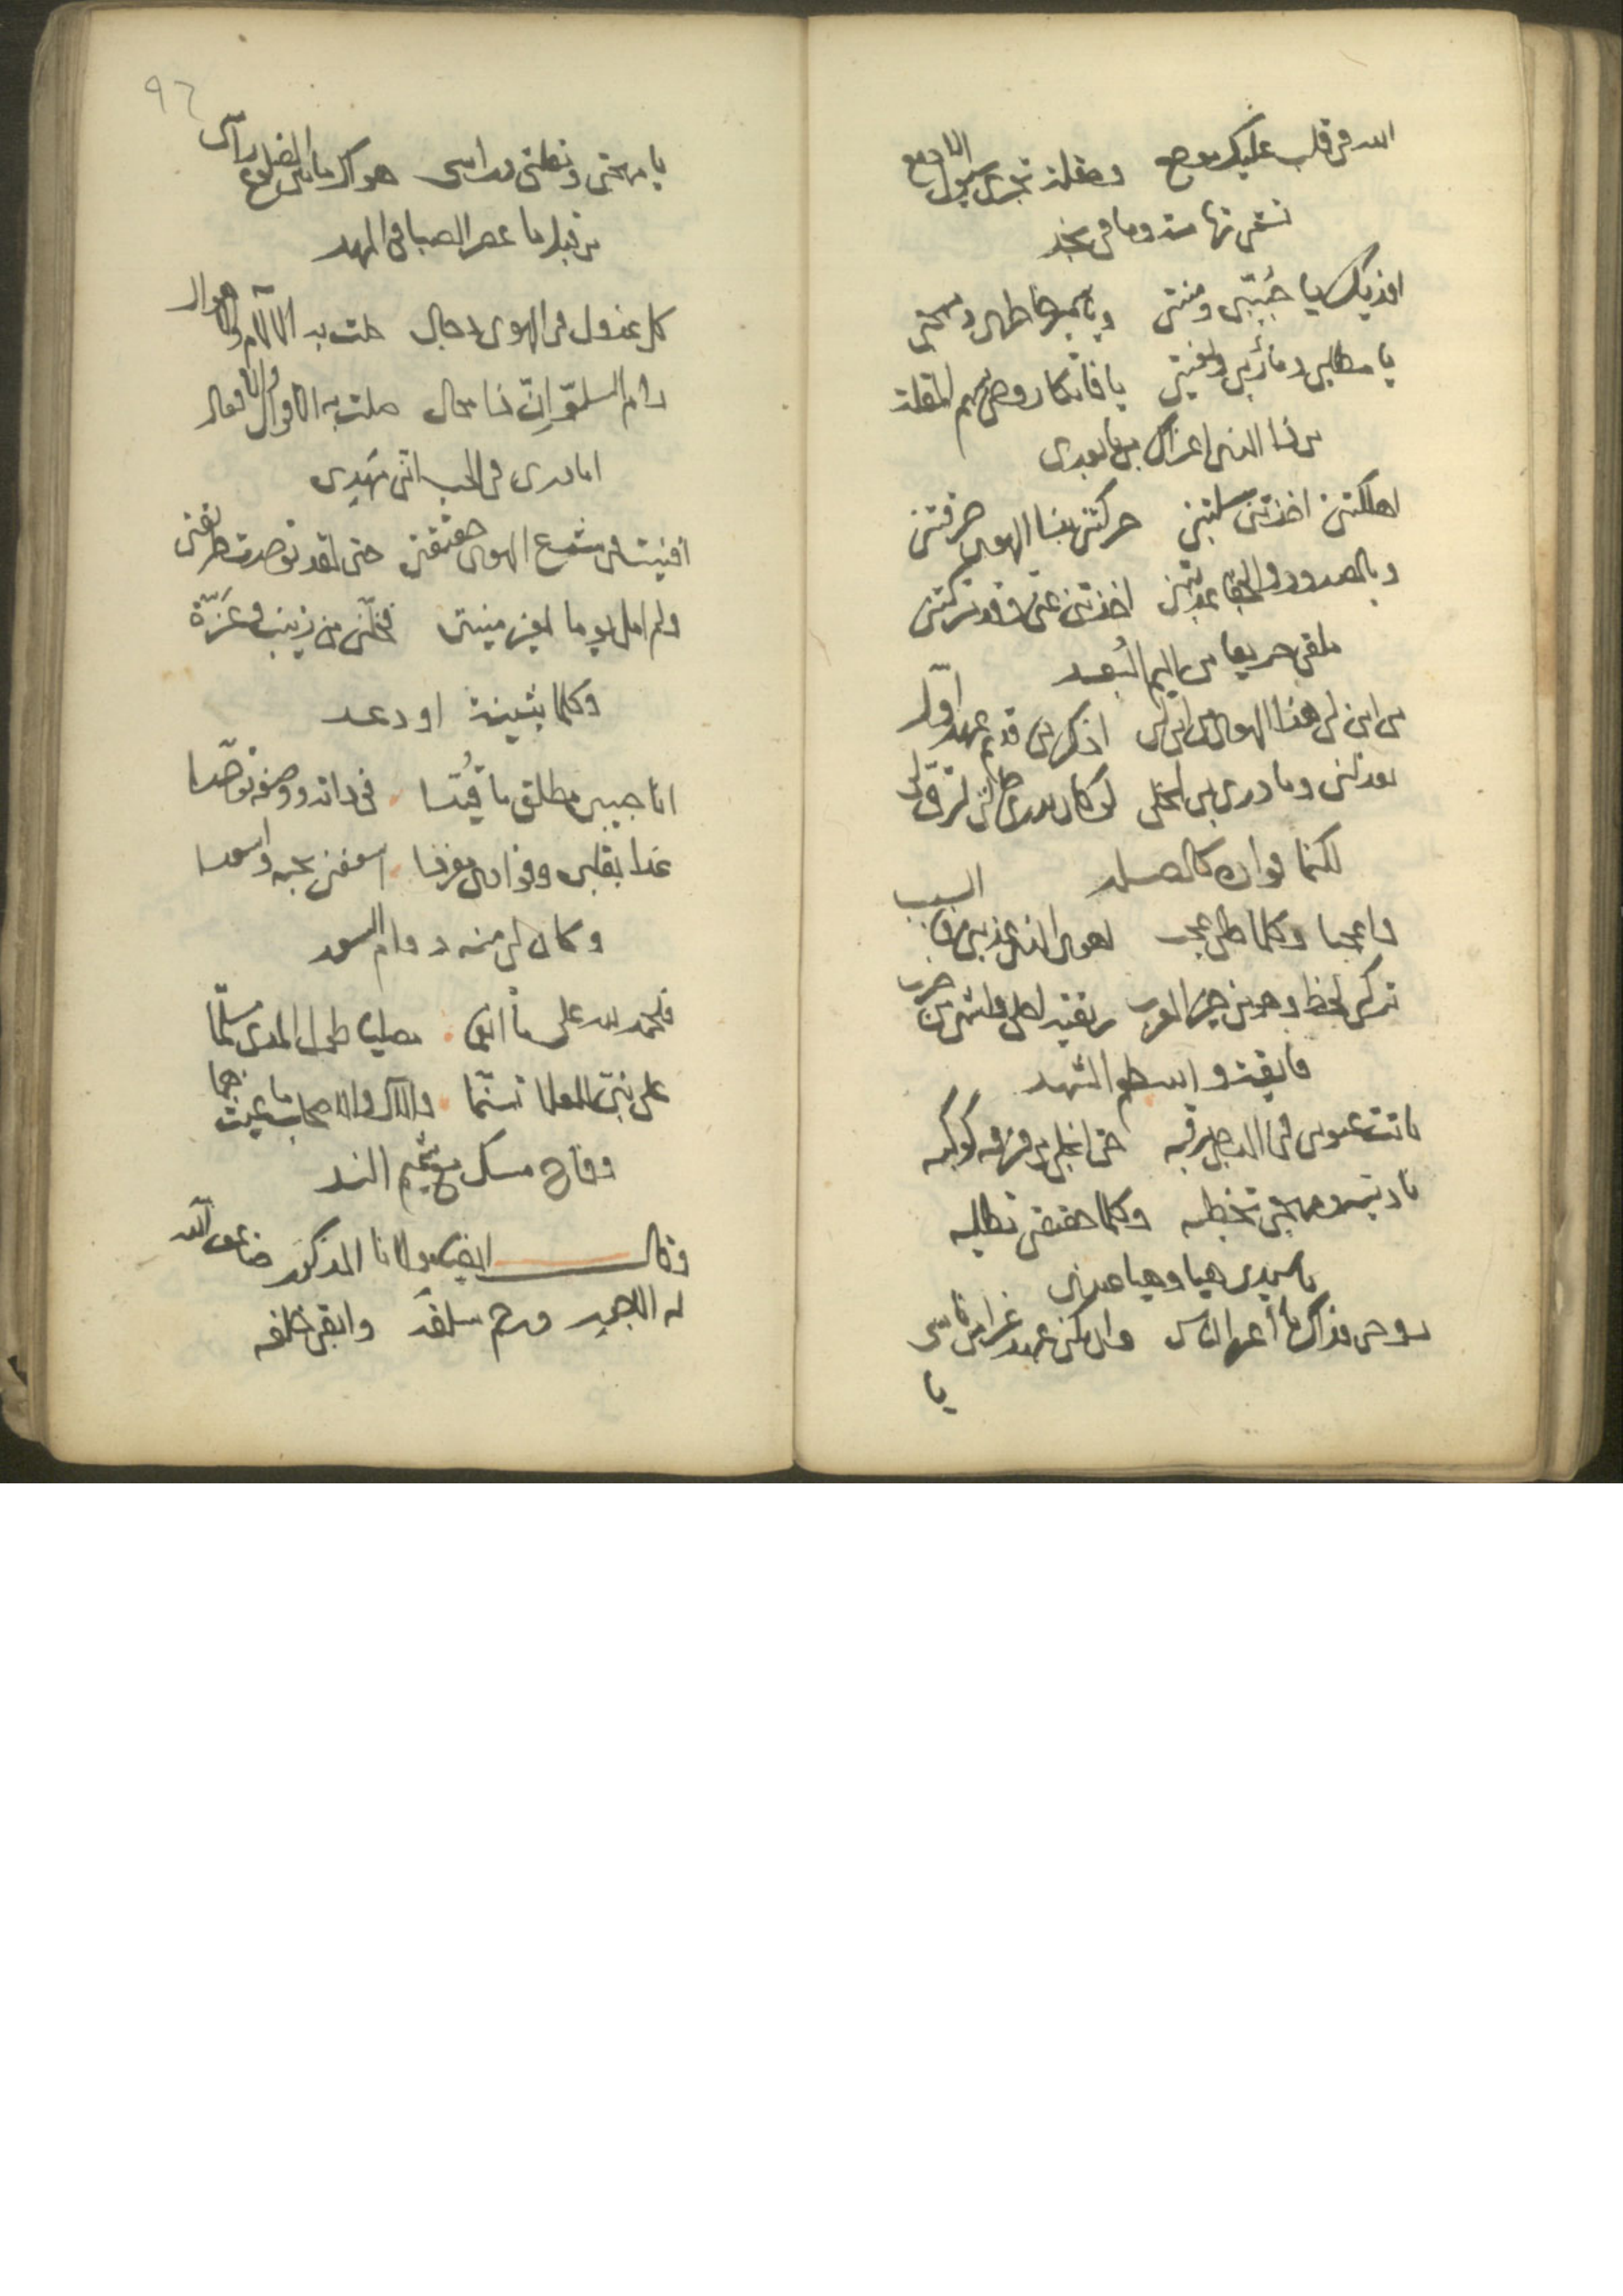 الله في قلب عليك موجع ومقلة تجري سيول الادمع
تسقي تهامة وما في نجد
افديك يا حُبيّبي ومنيتي وبالجوى خاطري ومهجتي
يا مطلبي ومأربي وبغيتي يا فاتكا روحي بسهم المقلة
من ذا الذي اغراك بي يا بعدي
اهلكتني اخذتني سلبتني حركتني بنا الهوى حرقتني
وبالصدود والجفا عذبتني اخذتني عني وقد تركتني
ملقى حريقا من اليم البُعد
من اين لي هذا الهوى من اين لي اذكرني قديم عهد اوّل
يعذلني وما درى بي الخلي لو كان يدري حالتي لرقّ لي
لكنما فواده كالصلد
واعجبا وكلما بي عجب اهوى الذي عذبني ولا سبب
تركي لحظ وهو من حي العرب
فايقة وابسطو الشهد
باتت عيوني في الدجى ترقبه حتى انجلى من فرقه كوكبه
ناديته ومهجتي تخطبه وكلما حقيقتي تطلبه
يا سيدي هيا وهيا عندي
روحي فداك يا أعز الناس وان يكن عهد غرامي ناسي
يا
٩٦
يا مهجتي وبطلتي وراسي هواك ما بين الضلوع راسي
من قبل ما عصر الصبا في المهد
كل عذول في الهوى دجال حلت به الآلام والاهوال
رام السلوّ انّ ذا محال ملت به الاقوال والافعال
اما درى في الحب اني مهدي
افنيت في شرع الهوى حقيقتي حتى لقد توحدت طريقتي
ولم امل يوما لغير منيتي فخلّني من زينب وعَزّة
وكلما بثينة او دعد
انا حبيبي مطلق ما قُيّدا في ذاته ووصفه توحّدا
غدا بقلبي وفوادي مفردا اسعفني بحبه واسعدا
وكان لي منه دوام السعد
فالحمد لله على ما انعما مصليا طول المدى مسلّما
على نبيّ للعلا تسنّما والآل والاصحاب ما غيث هما
وفاح مسك مع شميم الند
وقال ايضا مولانا المذكور ضاعف الله
له الاجور ورحم سلفه وابقى خلفه